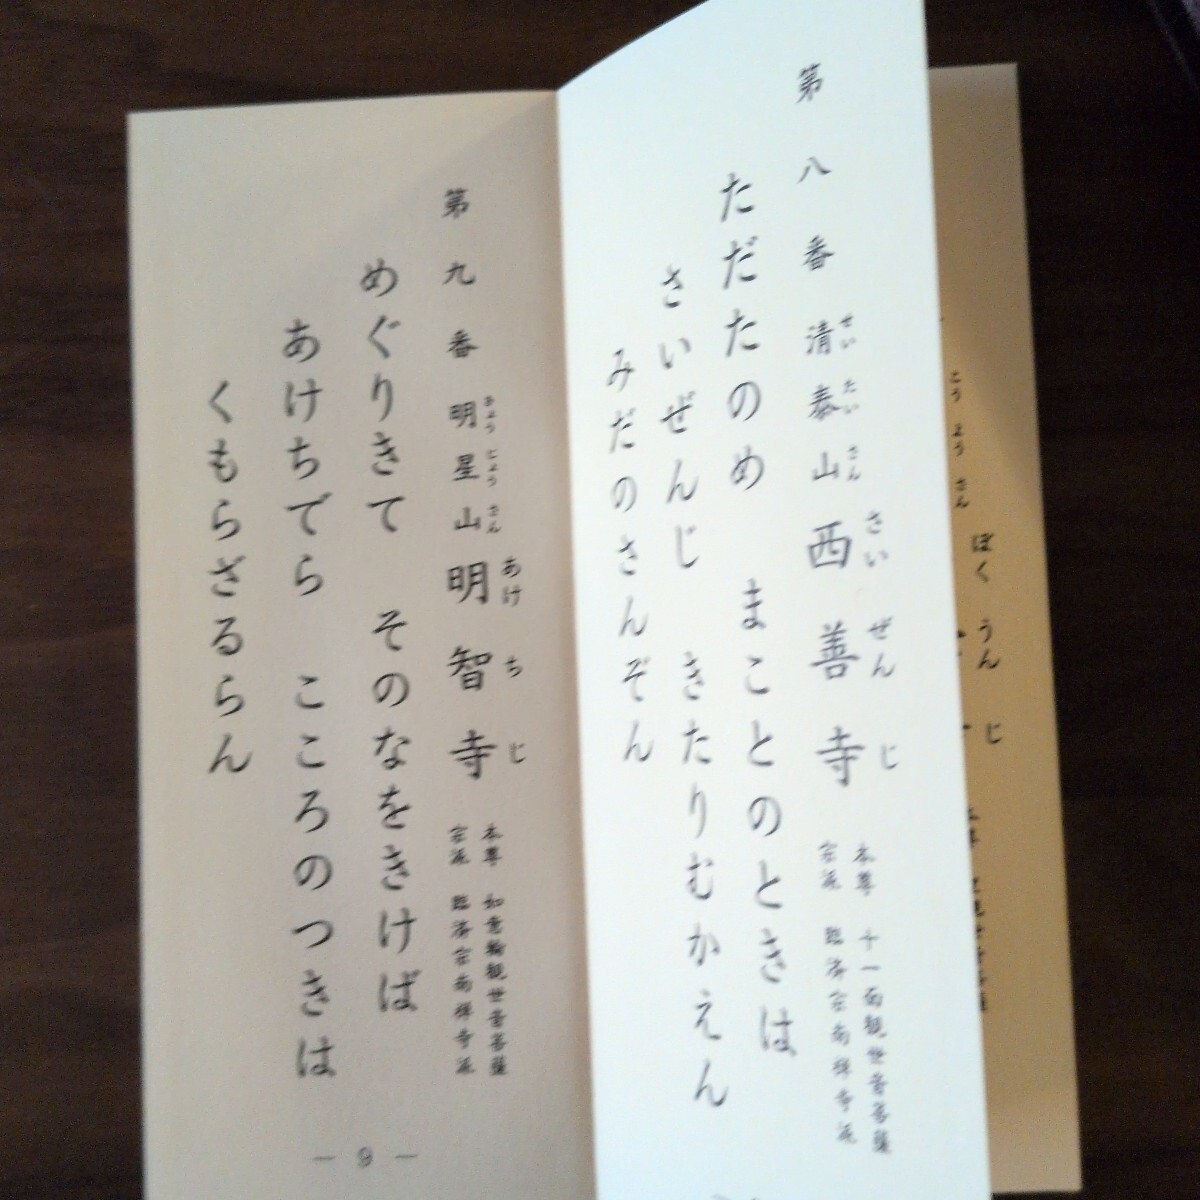 こうようさん
ぼくうんじ
第八番 清泰山 西善寺
せいたいさん さいぜんじ
本尊 十一面観世音菩薩
宗派 臨済宗南禅寺派
ただたのめ まことのときは
さいぜんじ きたりむかえん
みだのさんぞん
第九番 明星山 明智寺
みょうじょうさん あけちじ
本尊 如意輪観世音菩薩
宗派 臨済宗南禅寺派
めぐりきて そのなをきけば
あけちでら こころのつきは
くもらざるらん
― 9 ―